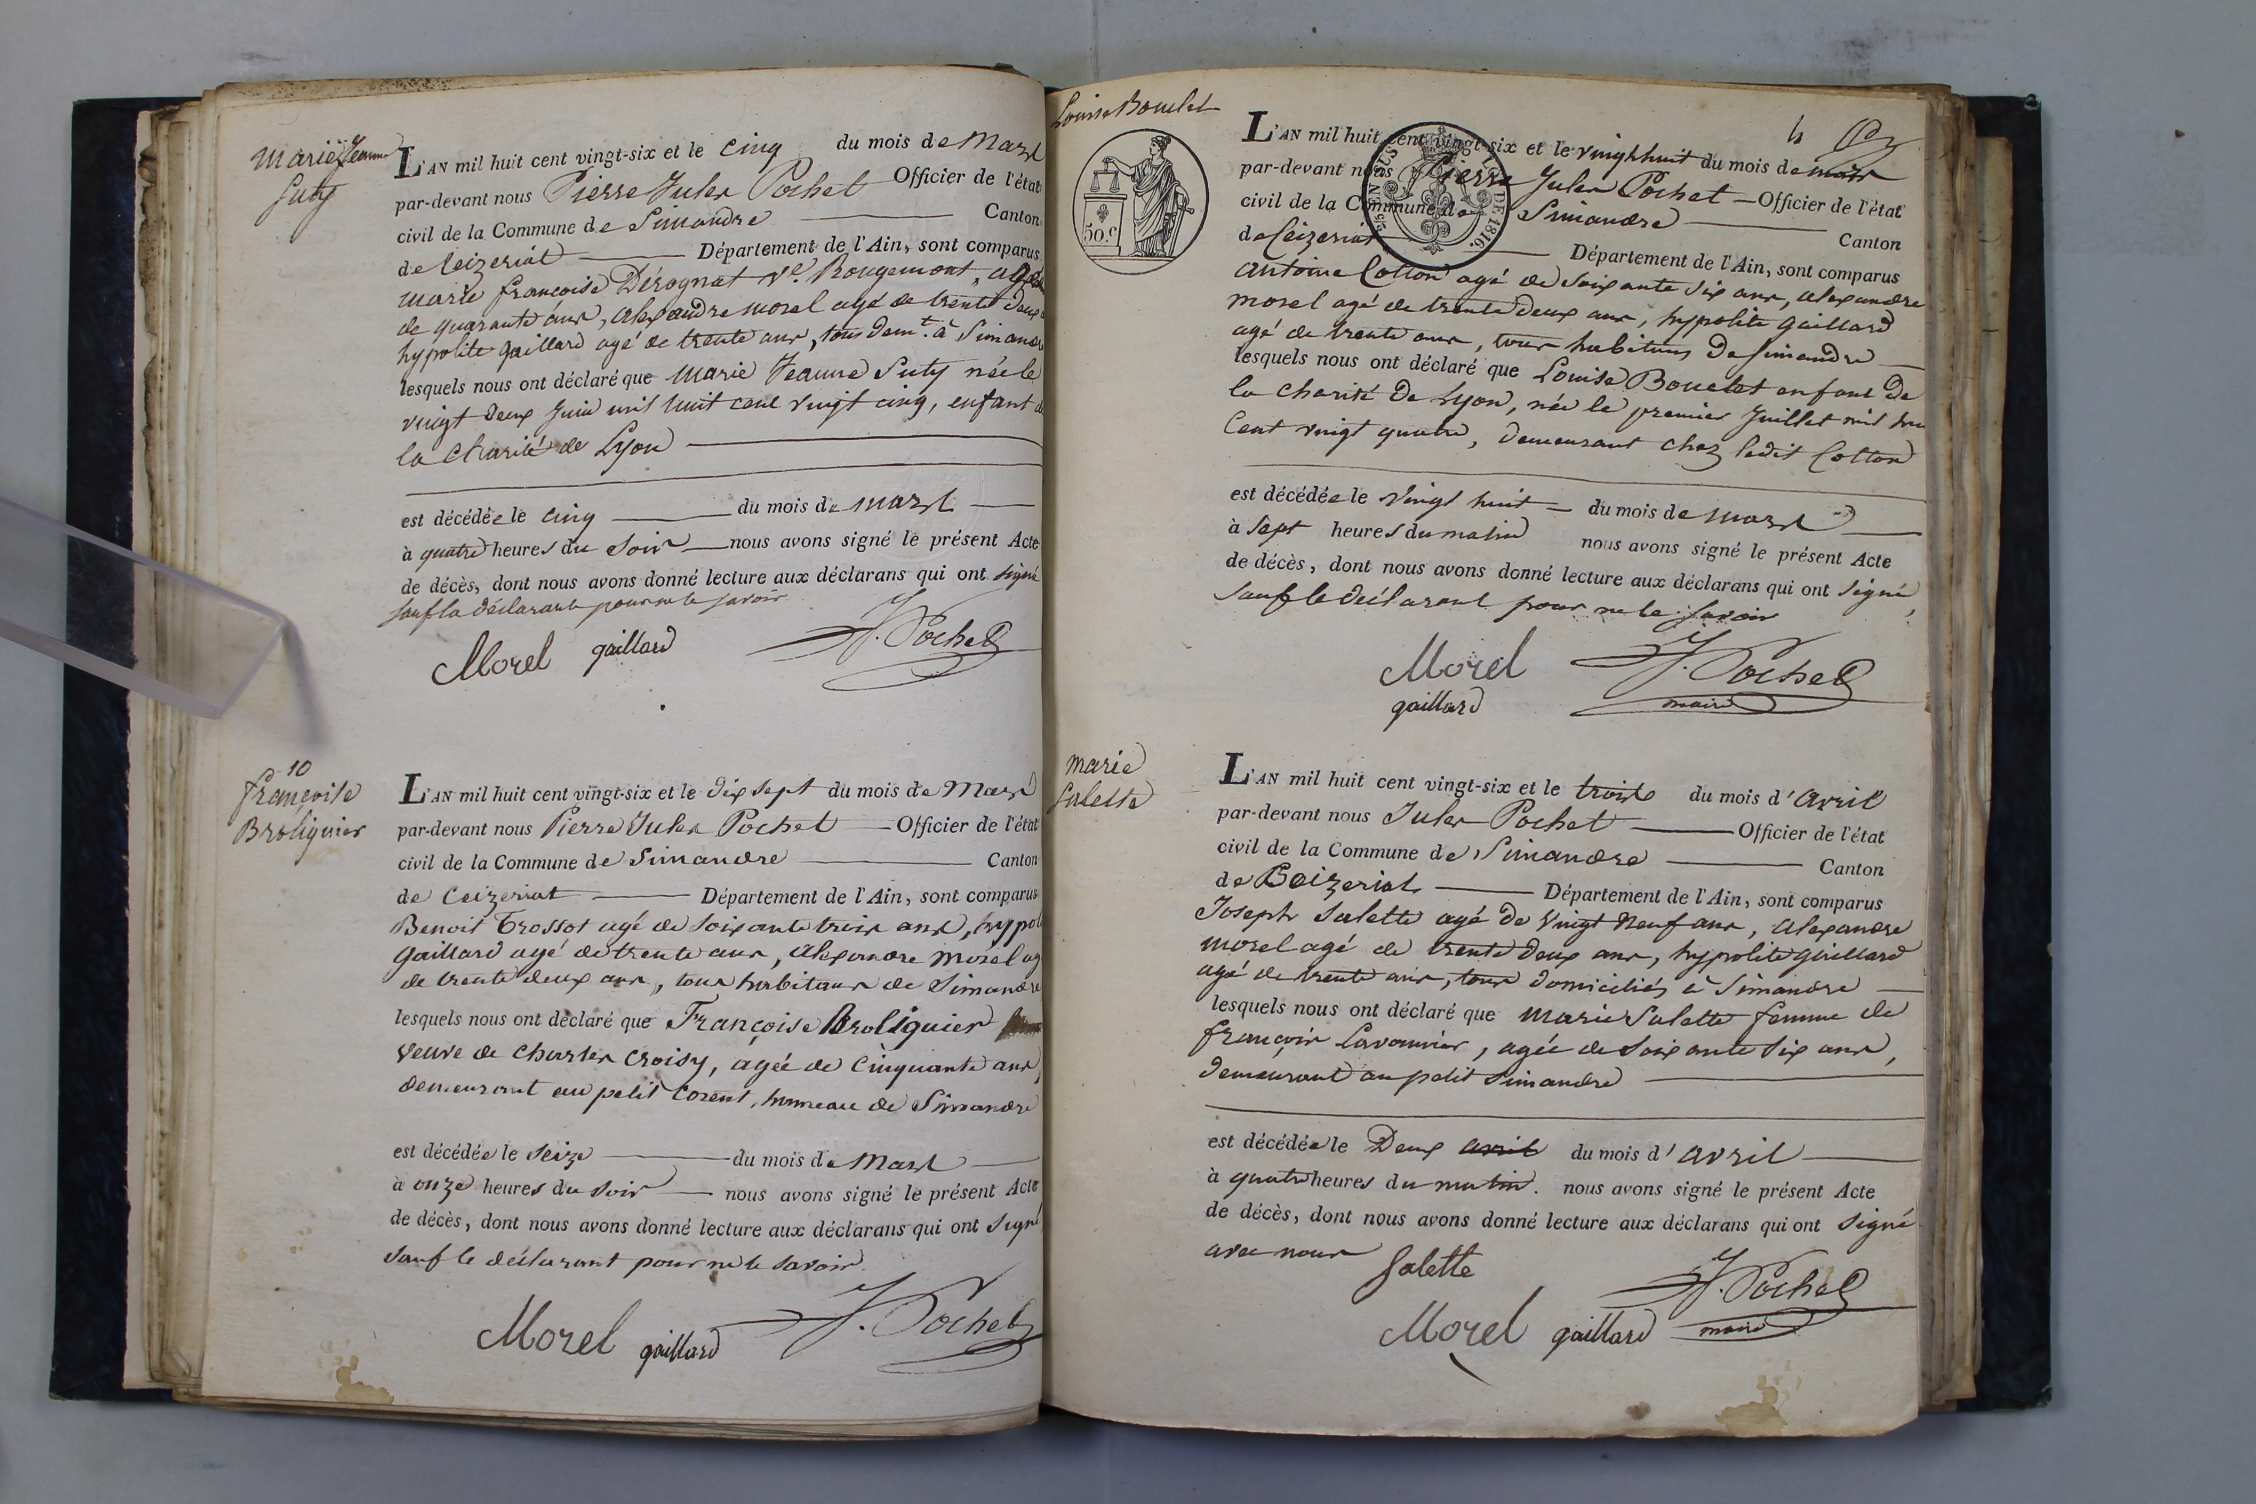 Marie Jeanne
Suty
L'AN mil huit cent vingt-six et le cinq du mois de Mars
par-devant nous Pierre Jules Pochet Officier de l'état
civil de la Commune de Simandre Canton
de Ceizeriat Département de l'Ain, sont comparus
marie francoise Dérognat Ve. Rougemont, agée
de quarante ans, alexandre morel agé de trente deux
hypolite gaillard agé de trente ans, tous demt. à Simandre
lesquels nous ont déclaré que Marie Jeanne Suty née le
vingt deux Juin mil huit cent vingt cinq, enfant de
la Charité de Lyon
est décédée le cinq du mois de mars
à quatre heures du soir nous avons signé le présent Acte
de décès, dont nous avons donné lecture aux déclarans qui ont signé
sauf la déclarante pour ne le savoir
Morel gaillard J. Pochet
10
françoise
Broliquier
L'AN mil huit cent vingt-six et le dix sept du mois de Mars
par-devant nous Pierre Jules Pochet Officier de l'état
civil de la Commune de Simandre Canton
de Ceizeriat Département de l'Ain, sont comparus
Benoit Trossot agé de soixante trois ans, hypol
gaillard agé de trente ans, alexandre morel ag
de trente deux ans, tous habitans de Simandre
lesquels nous ont déclaré que Françoise Broliquier
veuve de Charles Croisy, agée de Cinquante ans,
demeurant au petit Corent, hameau de Simandre
est décédée le seize du mois de Mars
à onze heures du soir nous avons signé le présent Acte
de décès, dont nous avons donné lecture aux déclarans qui ont signé
sauf le déclarant pour ne le savoir.
Morel gaillard J. Pochet
Louise Bouclet
50.c
LOI DE 1816.
4
L'AN mil huit cent vingt-six et le vingt huit du mois de mars
par-devant nous Pierre Jules Pochet Officier de l'état
civil de la Commune de Simandre Canton
de Ceizeriat Département de l'Ain, sont comparus
antoine Cotton agé de soixante six ans, alexandre
morel agé de trente deux ans, hypolite gaillard
agé de trente ans, tous habitans de simandre
lesquels nous ont déclaré que Louise Bouclet enfant de
la charité de Lyon, née le premier Juillet mil hui
Cent vingt quatre, demeurant chez ledit Cotton
est décédée le vingt huit du mois de mars
à sept heures du matin nous avons signé le présent Acte
de décès, dont nous avons donné lecture aux déclarans qui ont signé,
sauf le déclarant pour ne le savoir
Morel J. Pochet
gaillard maire
marie
Salette
L'AN mil huit cent vingt-six et le trois du mois d'avril
par-devant nous Jules Pochet Officier de l'état
civil de la Commune de Simandre Canton
de Ceizeriat Département de l'Ain, sont comparus
Joseph Salette agé de vingt neuf ans, alexandre
morel agé de trente deux ans, hypolite gaillard
agé de trente ans, tous domiciliés à Simandre
lesquels nous ont déclaré que marie Salette femme de
françois Lavouvier, agée de soixante six ans,
demeurant au petit simandre
est décédée le Deux avril du mois d'avril
à quatre heures du matin. nous avons signé le présent Acte
de décès, dont nous avons donné lecture aux déclarans qui ont signé
avec nous
Salette J. Pochet
Morel gaillard maire